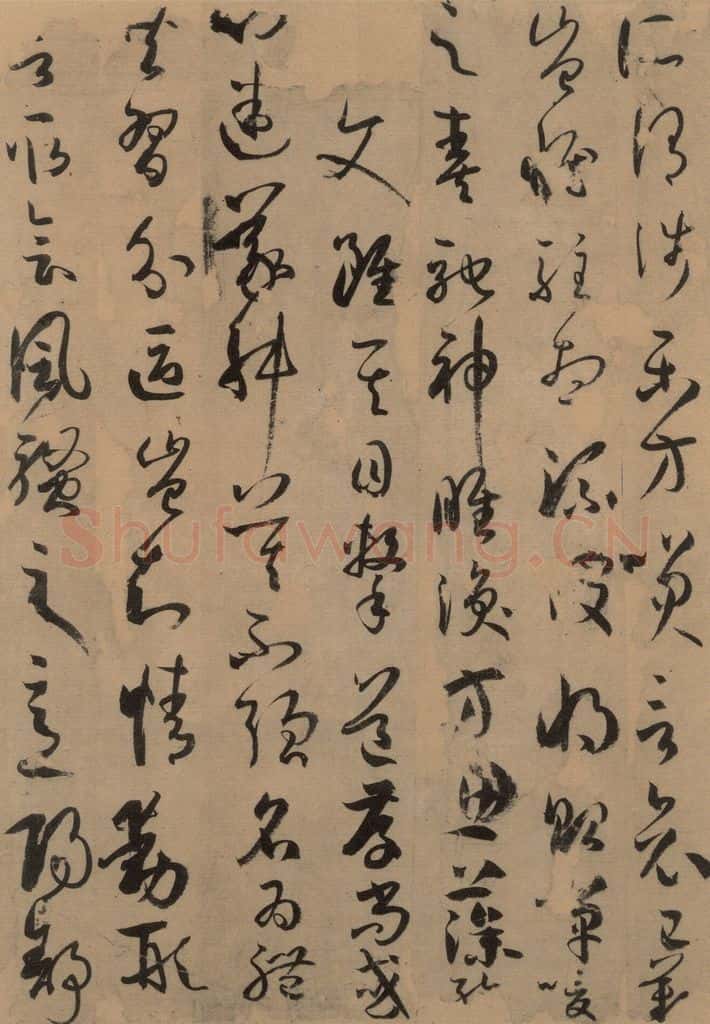 所謂涉樂方笑言哀已歎
豈惟駐想流波將貽嘽噯
之奏馳神睢渙方思藻繪
文雖其目擊道存尚或
心迷議舛莫不強名為體
共習分區豈知情動形
言取會風騷之意陽舒
Shufawang.CN